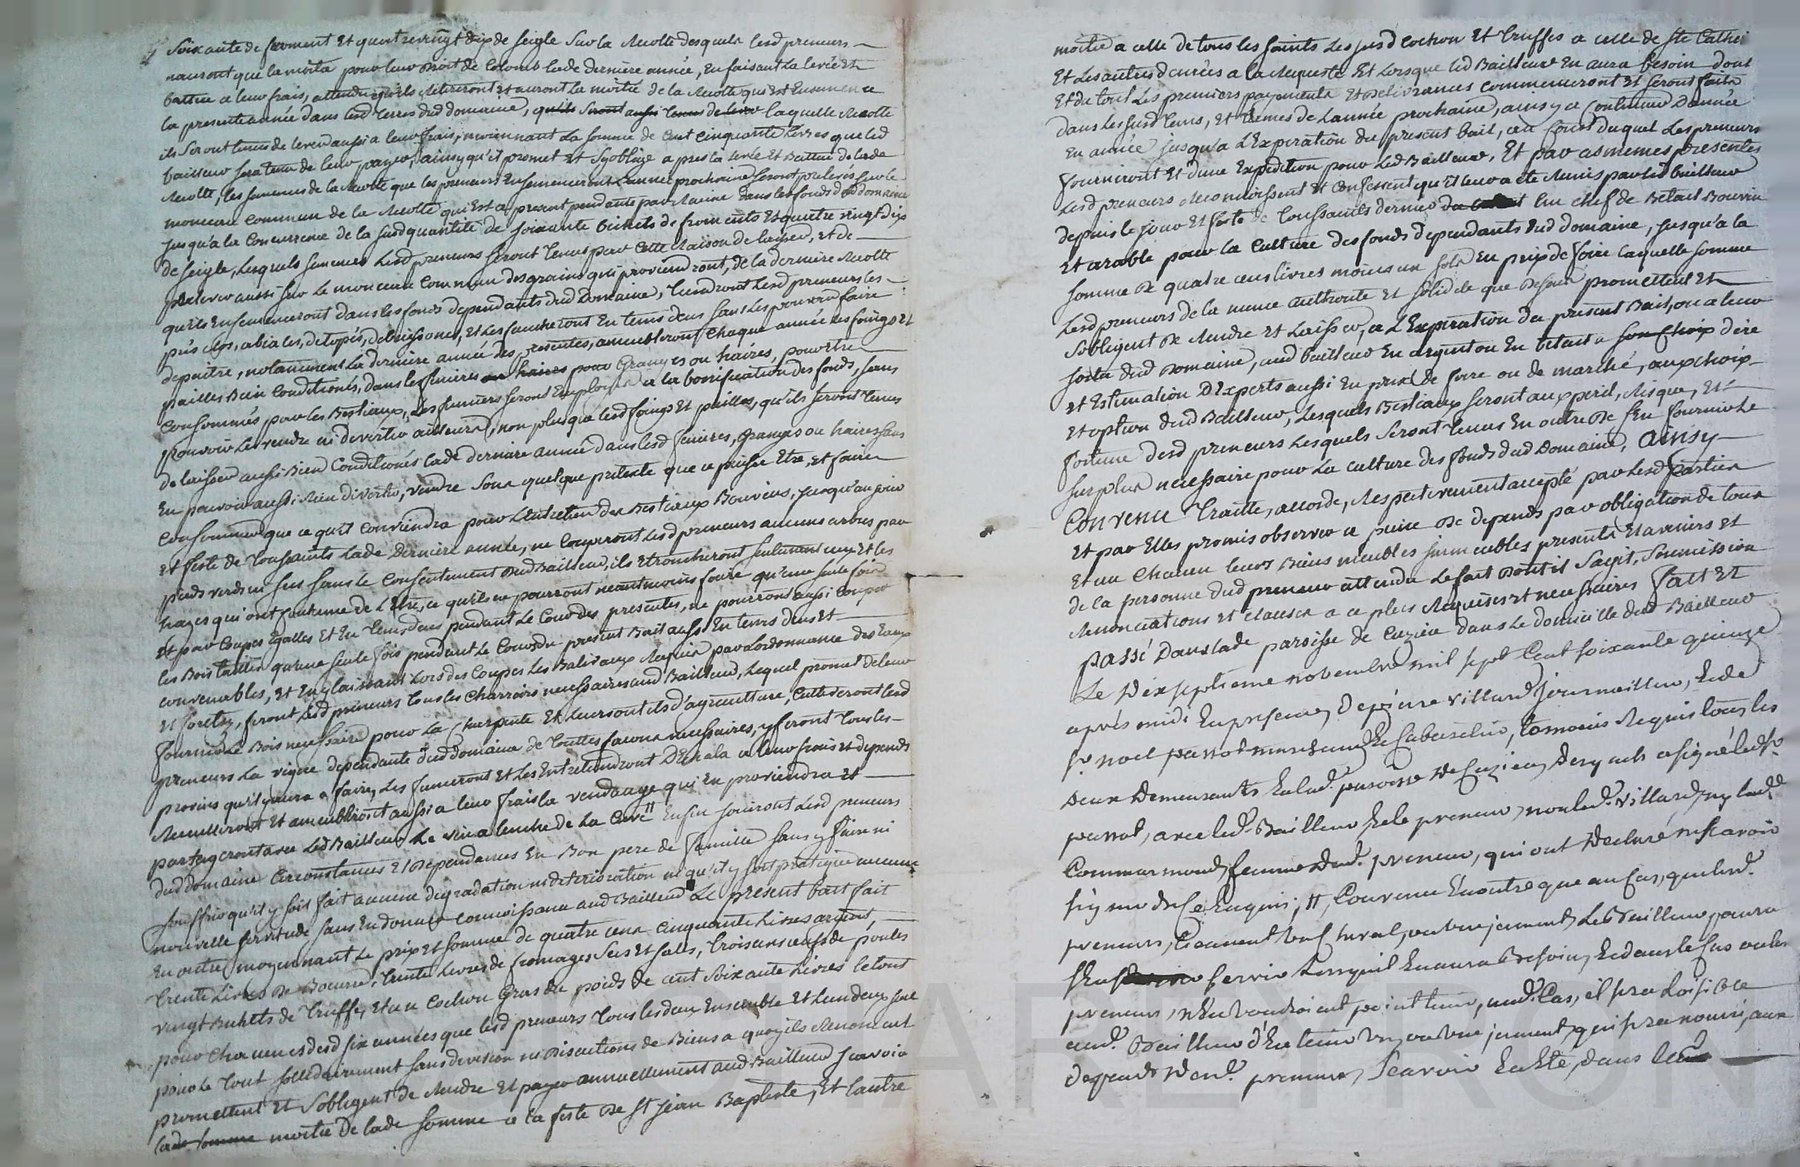 Soixante de froment Et quatrevingt dix de seigle Sur la Recolte desquels lesd preneurs
nauront que la moitié pour leur droit de Colons lade derniere année, En faisant la levée Et
battue a leur frais, attendu qu'ils retireront et auront la moitié de la Recolte qui est Ensemencée
la presente année dans lesd terres dud domaine, laquelle Recolte
ils Seront tenus de lever aussi a leur frais, moiennant la Somme de Cent Cinquante livres que led
bailleur sera tenu de leur payer, ainsy qu'il promet Et Soblige apres la levée Et Battue de lade
Recolte, les semences de la Recolte que les preneurs Ensemenceront l'année prochaine Seront prelevés sur le
monceau Commun de la Recolte qui est a present pendante par Racine dans les fonds dud domaine
jusqu'a la Concurrence de la susd quantité de Soixante bichets de froments Et quatre vingt dix
de seigle, Lesquels semences Lesd preneurs Seront tenus par cette Raison de laisser, et de
prelever aussi sur le monceau Commun des grains qui proviendront, de la derniere Recolte
qu'ils Ensemenceront dans les fonds dependants dud Domaine, tiendront Lesd preneurs les
prés clos, détopés, débuissonés, Et Les faucheront En tems deus Sans Les pouvoir faire
depaitre, notamment la derniere année des presentes, ameubleront Chaque année les foings Et
pailles Bien Conditionés, dans les fenieres pour Granges ou haires, pour être
Consommés par les Bestiaux, Les fumiers seront Employés a la bonification des fonds, sans
pouvoir les vendre ni divertir ailleurs, non plus que lesd foings Et pailles, qu'ils seront tenus
de laisser aussi Bien Conditionés lade derniere année dans lesd fenieres, granges ou haires sans
En pouvoir aussi Rien divertir, vendre Sous quelque pretexte que ce puisse Etre, et faire
Consommer que ce qu'il Conviendra pour L'entretien des Bestiaux Bouvins, jusqu'au jour
Et feste de Toussaints lade derniere année, ne Couperont Lesd preneurs aucuns arbres par
pieds verds ni secs sans le Consentement dud Bailleur, ils Etroncheront seulement ceux et les
hayes qui ont Coutume de L'être, ce qu'ils ne pourront neantmoins faire qu'une seule fois
et par Coupes Egalles Et En tems deus pendant le Cours des presentes, ne pourront aussi Couper
les Bois taillis qu'une seule fois pendant Le Cours du present Bail aussi En tems deus et
convenables, et En y laissant Lors des Coupes les Balivaux Requis par Lordonnance des Eaux
Et forêts, feront Lesd preneurs tous les Charrois necessaires aud Bailleur, Lequel promet de leur
fournir Le Bois necessaire pour La Charpente Et Leurs outils d'agriculture, Cultiveront lesd
preneurs La vigne dependante dud domaine de touttes façons necessaires, y feront tous les
provins qu'il y aura a faire, Les fumeront Et les Entretiendront a leur frais et depends
Recuilliront Et ameubleront aussi a leur frais la vendange qui En proviendra Et
partageront avec Led Bailleur Le vin a lanche de La Cuve Enfin Jouiront Lesd preneurs
dud domaine Circonstances Et dependances En Bon pere de famille sans y faire ni
souffrir qu'il y soit fait aucune degradation ni deterioration ni qu'il y soit pratiqué aucune
nouvelle servitude sans En donner connoissance aud Bailleur Le present bail fait
En outre moyennant Le prix Et somme de quatre cens Cinquante Livres argent,
trente Livres de Beurre, trente Livres de fromages Secs et Salés, trois cens œufs de poules
vingt Bichets de Truffes, Et un Cochon Gras du poids de cent Soixante Livres le tout
pour Chacune desd six années que lesd preneurs tous les deux Ensemble Et Lun deux seul
pour le tout sollidairement sans division ni discution de Biens a quoy ils Renoncent
promettent Et Sobligent de Rendre Et payer annuellement aud Bailleur Scavoir
lade somme moitié de lade somme a la feste de St Jean Baptiste, Et Lautre
moitié a celle de tous les Saints Les susd Cochon Et truffes a celle de Ste Cathe
Et les autres denrées a la Requeste Et Lorsque led Bailleur En aura besoin dont
Et du tout Les premiers payements Et delivrances commenceront Et seront faits
dans les susd tems, et termes de Lannée prochaine, ainsy a Continuer Dannée
En année jusqu'a L'Expiration du present bail, au Cours duquel Les preneurs
fourniront Et d'une Expedition pour Led Bailleur, Et par ces memes presentes
Lesd preneurs Reconnoissent Et Confessent qu'il leur a eté Remis par led bailleur
depuis le jour Et feste de Toussaints dernier Un chef de Betail Bouvin
Et arable pour la Culture des fonds dependants dud domaine, jusqu'a la
Somme de quatre cens livres moins un sols En prix de foire Laquelle somme
Lesd preneurs de la meme authorité Et solidité que dessus promettent Et
Sobligent de Rendre et Laisser, a L'Expiration du present Bail, ou a leur
sortie dud Domaine, aud bailleur En argent ou En betail a son Choix dire
et Estimation D'Experts aussi En prix de foire ou de marché, aux choix
Et option dud Bailleur, Lesquels Bestiaux seront aux peril, Risque, Et
fortune desd preneurs Lesquels Seront tenus En outre de s'En fournir le
surplus necessaire pour La Culture des fonds dud Domaine, Ainsy
Convenu traitté, accordé, Respectivement accepté par Lesd parties
Et par Elles promis observer a peine de depends par obligation de tous
Et un Chacun leurs Biens meubles immeubles presents Et avenirs Et
de la personne dud preneur attendu Le fait dont il Sagit, Soumission
Renonciations et Clauses a ce plus Requises Et necessaires Fait Et
Passé Dans lade paroisse de Cuzieu dans le domicille dud Bailleur
Le dixseptieme novembre mil sept Cent soixante quinze
aprés midi En presence de pierre villard journaillier, Et de
sr noel parrot marchand, temoins Requis tous les
deux Demeurants En lad. paroisse de Cuzieu, desquels a signé led sr
parrot, avec led. Bailleur Et le preneur, non led. villard, ny lad.
Commarmond femme dud. preneur, qui ont declaré ne scavoir
signer de ce Enquis; Convenu En outre que au Cas, que lesd.
preneurs, tiennent un Cheval, ou une jument, Le Bailleur pourra
s'En servir Lorsquil En aura Besoin, Et dans le Cas ou les
preneurs, n'En voudroient point tenir, aud. Cas, il sera Loisible
aud. Bailleur d'En tenir un, ou une jument, qui sera nourri, aux
depends desd. preneurs, Scavoir En Eté, dans les
HAREYRON